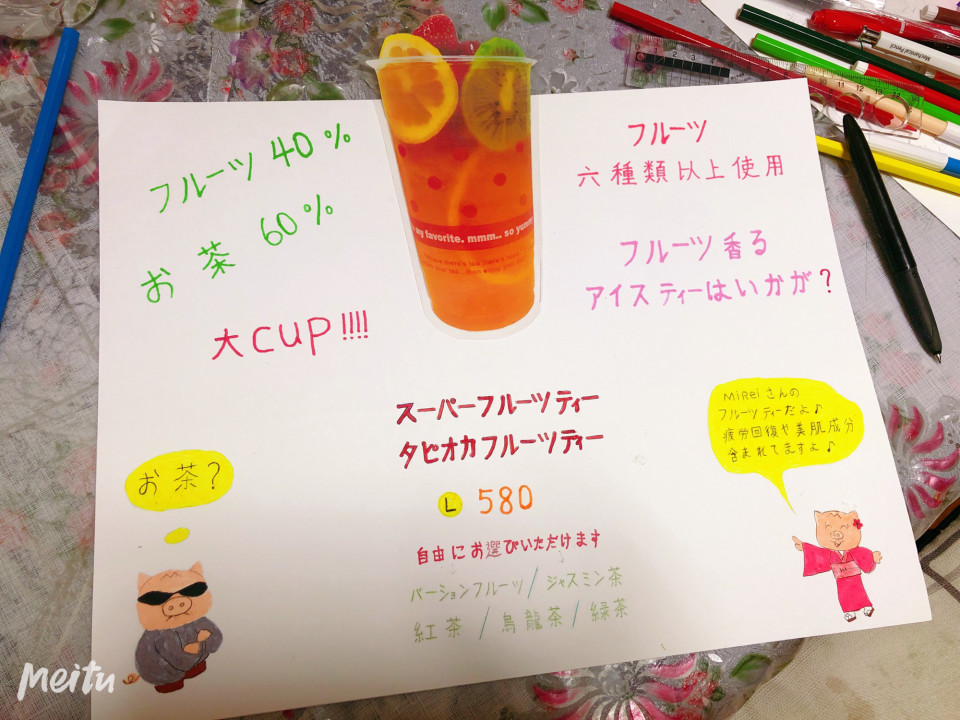 フルーツ 40%
お茶 60%
大cup!!!!
my favorite. mmm.. so yummy
フルーツ
六種類以上使用
フルーツ香る
アイスティーはいかが?
スーパーフルーツティー
タピオカフルーツティー
L 580
自由にお選びいただけます
パーションフルーツ/ジャスミン茶
紅茶/烏龍茶/緑茶
お茶?
MiReiさんの
フルーツティーだよ♪
疲労回復や美肌成分
含まれてますよ♪
Mechanical Pencil
Meitu